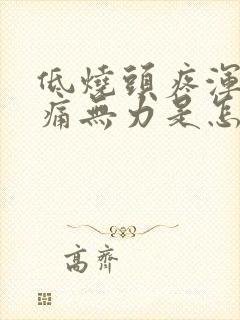 低燒頭疼渾
痛無力是怎
高齊